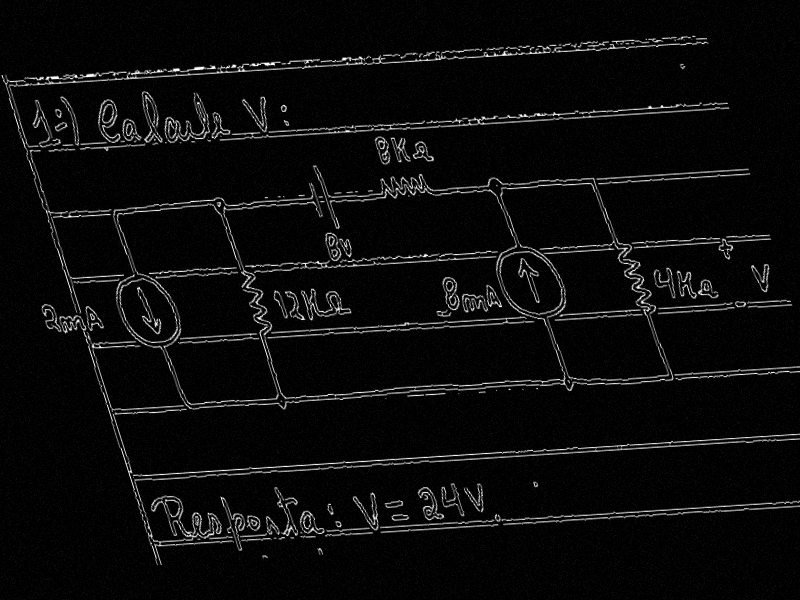 1:) Calcule V:
8KΩ
8V
2mA 12KΩ 8mA 4KΩ + V -
Resposta: V = 24V.